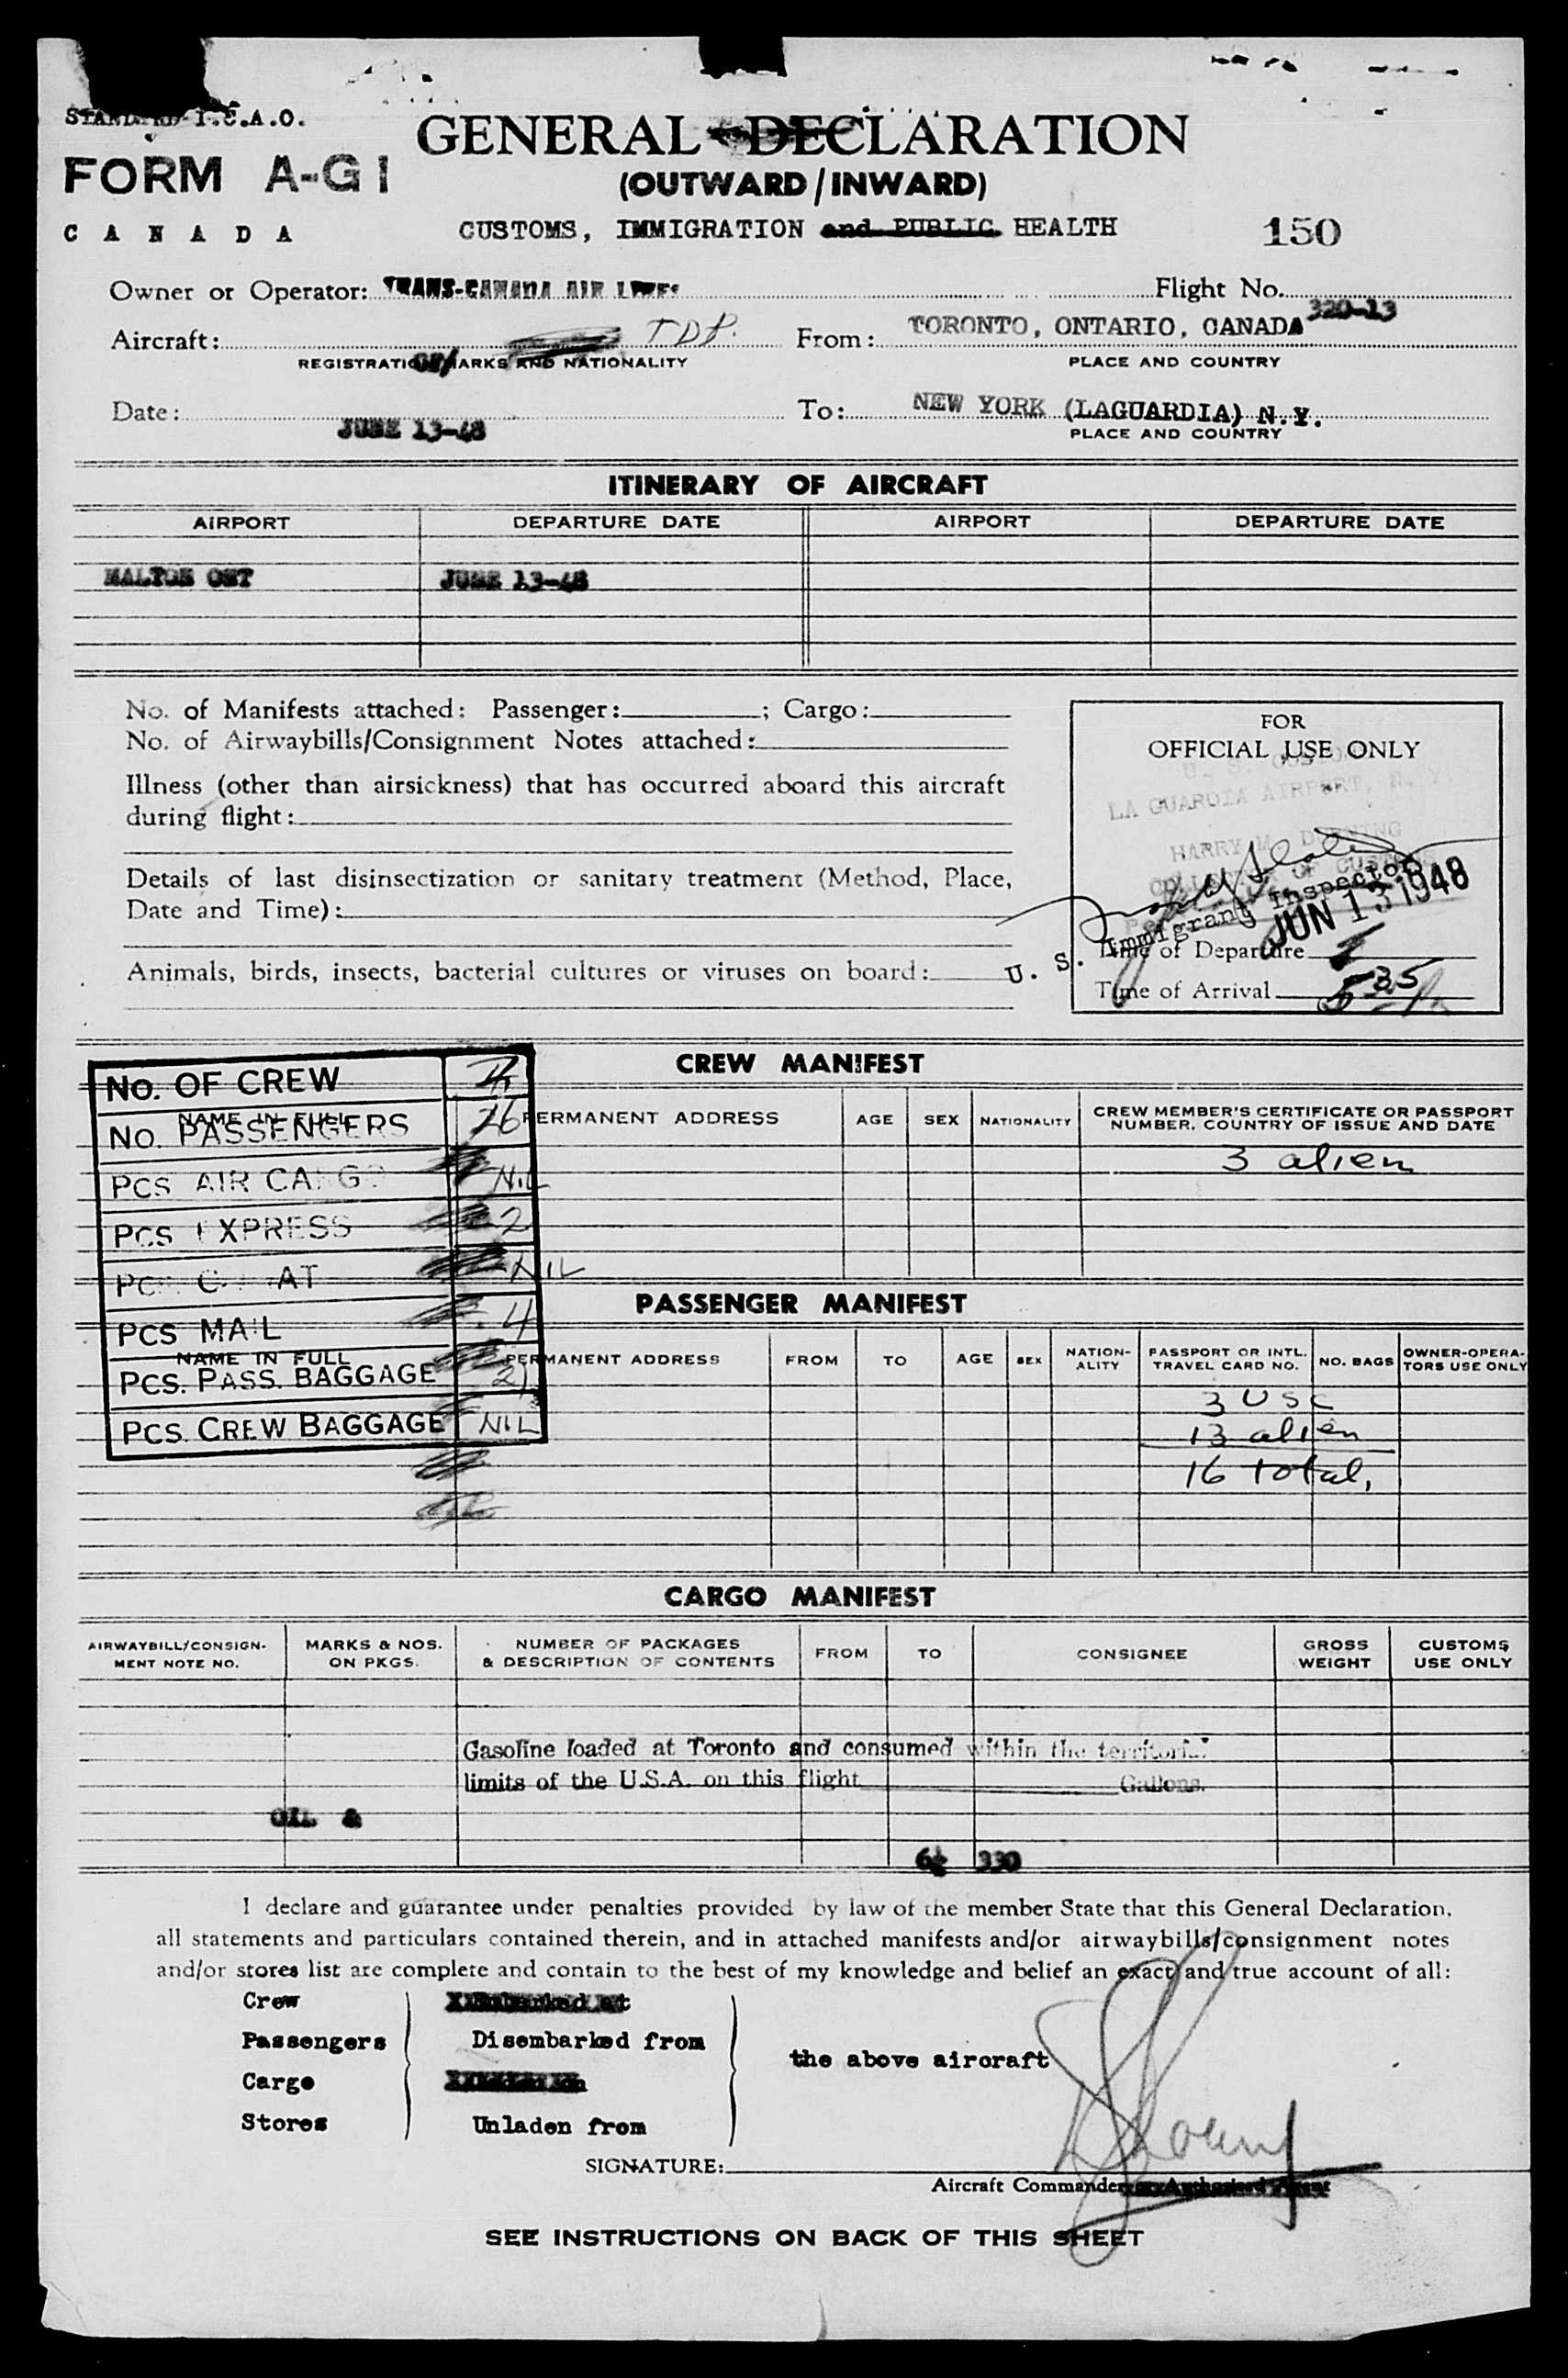 STANDARD I.C.A.O.
GENERAL DECLARATION
FORM A-G1
(OUTWARD/INWARD)
CANADA
CUSTOMS, IMMIGRATION and PUBLIC HEALTH
150
Owner or Operator: TRANS-CANADA AIR LINES
Flight No. 320-13
Aircraft: TDP.
From: TORONTO, ONTARIO, CANADA
REGISTRATION MARKS AND NATIONALITY
PLACE AND COUNTRY
Date: JUNE 13-48
To: NEW YORK (LAGUARDIA) N.Y.
PLACE AND COUNTRY
ITINERARY OF AIRCRAFT
AIRPORT DEPARTURE DATE AIRPORT DEPARTURE DATE
MALTON ONT JUNE 13-48
No. of Manifests attached: Passenger: ; Cargo:
No. of Airwaybills/Consignment Notes attached:
Illness (other than airsickness) that has occurred aboard this aircraft
during flight:
Details of last disinsectization or sanitary treatment (Method, Place,
Date and Time):
Animals, birds, insects, bacterial cultures or viruses on board:
FOR
OFFICIAL USE ONLY
LA GUARDIA AIRPORT, N. Y.
HARRY M. DURNING
COLLECTOR OF CUSTOMS
U. S. Immigrant Inspector
JUN 13 1948
Time of Departure
Time of Arrival 535
CREW MANIFEST
NAME IN FULL PERMANENT ADDRESS AGE SEX NATIONALITY CREW MEMBER'S CERTIFICATE OR PASSPORT
NUMBER, COUNTRY OF ISSUE AND DATE
3 alien
No. OF CREW
No. PASSENGERS
PCS AIR CARGO NIL
PCS EXPRESS 2
NIL
PCS MAIL 4
PCS. PASS. BAGGAGE
PCS. CREW BAGGAGE NIL
PASSENGER MANIFEST
NAME IN FULL PERMANENT ADDRESS FROM TO AGE SEX NATION-
ALITY PASSPORT OR INTL.
TRAVEL CARD NO. NO. BAGS OWNER-OPERA-
TORS USE ONLY
3 USC
13 alien
16 total,
CARGO MANIFEST
AIRWAYBILL/CONSIGN-
MENT NOTE NO. MARKS & NOS.
ON PKGS. NUMBER OF PACKAGES
& DESCRIPTION OF CONTENTS FROM TO CONSIGNEE GROSS
WEIGHT CUSTOMS
USE ONLY
Gasoline loaded at Toronto and consumed within the territorial
limits of the U.S.A. on this flight Gallons.
OIL &
6½ 330
I declare and guarantee under penalties provided by law of the member State that this General Declaration,
all statements and particulars contained therein, and in attached manifests and/or airwaybills/consignment notes
and/or stores list are complete and contain to the best of my knowledge and belief an exact and true account of all:
Crew
Passengers Disembarked from
the above aircraft
Cargo
Stores Unladen from
SIGNATURE:
Aircraft Commander or Authorised Agent
SEE INSTRUCTIONS ON BACK OF THIS SHEET